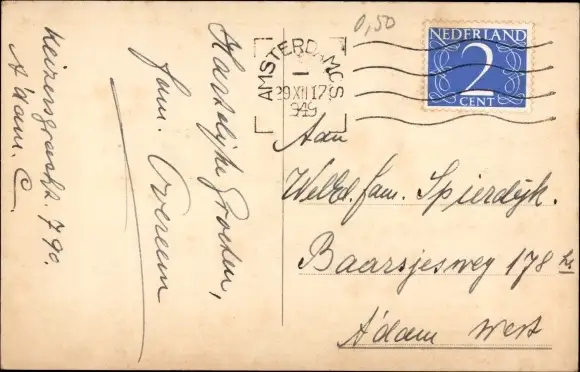 0,50
NEDERLAND
2
CENT
AMSTERDAM C.S.
29 XII 17
1949
Keizersgracht. 790.
A'dam. C.
Hartelijke Groeten,
fam. Overeem
Aan
WelEd. fam. Spierdijk.
Baarsjesweg 178 hs
A'dam West